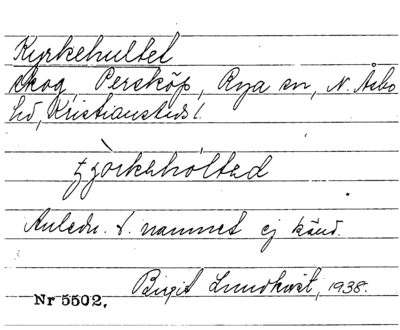 Kyrkehultet
skog, Persköp, Rya sn, N. Åsbo
hd, Kristianstads l.
Anledn. t. namnet ej känd.
Birgit Lundkvist, 1938.
Nr 5502.